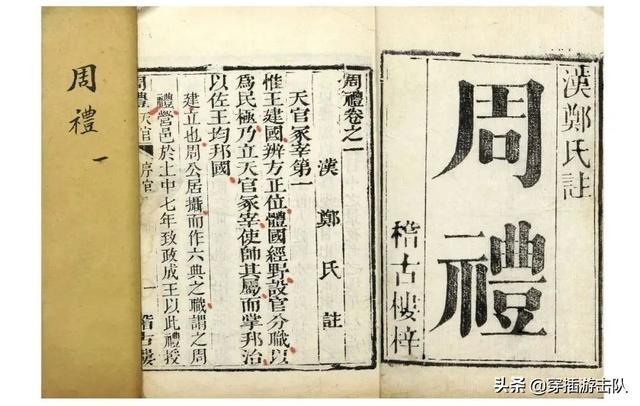 漢鄭氏註
周禮
稽古樓梓
周禮卷之一
漢鄭氏註
天官冢宰第一
惟王建國辨方正位體國經野設官分職以
為民極乃立天官冢宰使帥其屬而掌邦治
以佐王均邦國
建立也周公居攝而作六典之職謂之周
禮營邑於土中七年致政成王以此禮授
周禮 天官 序官 一 稽古樓
周禮 一
头条 @穿插游击队